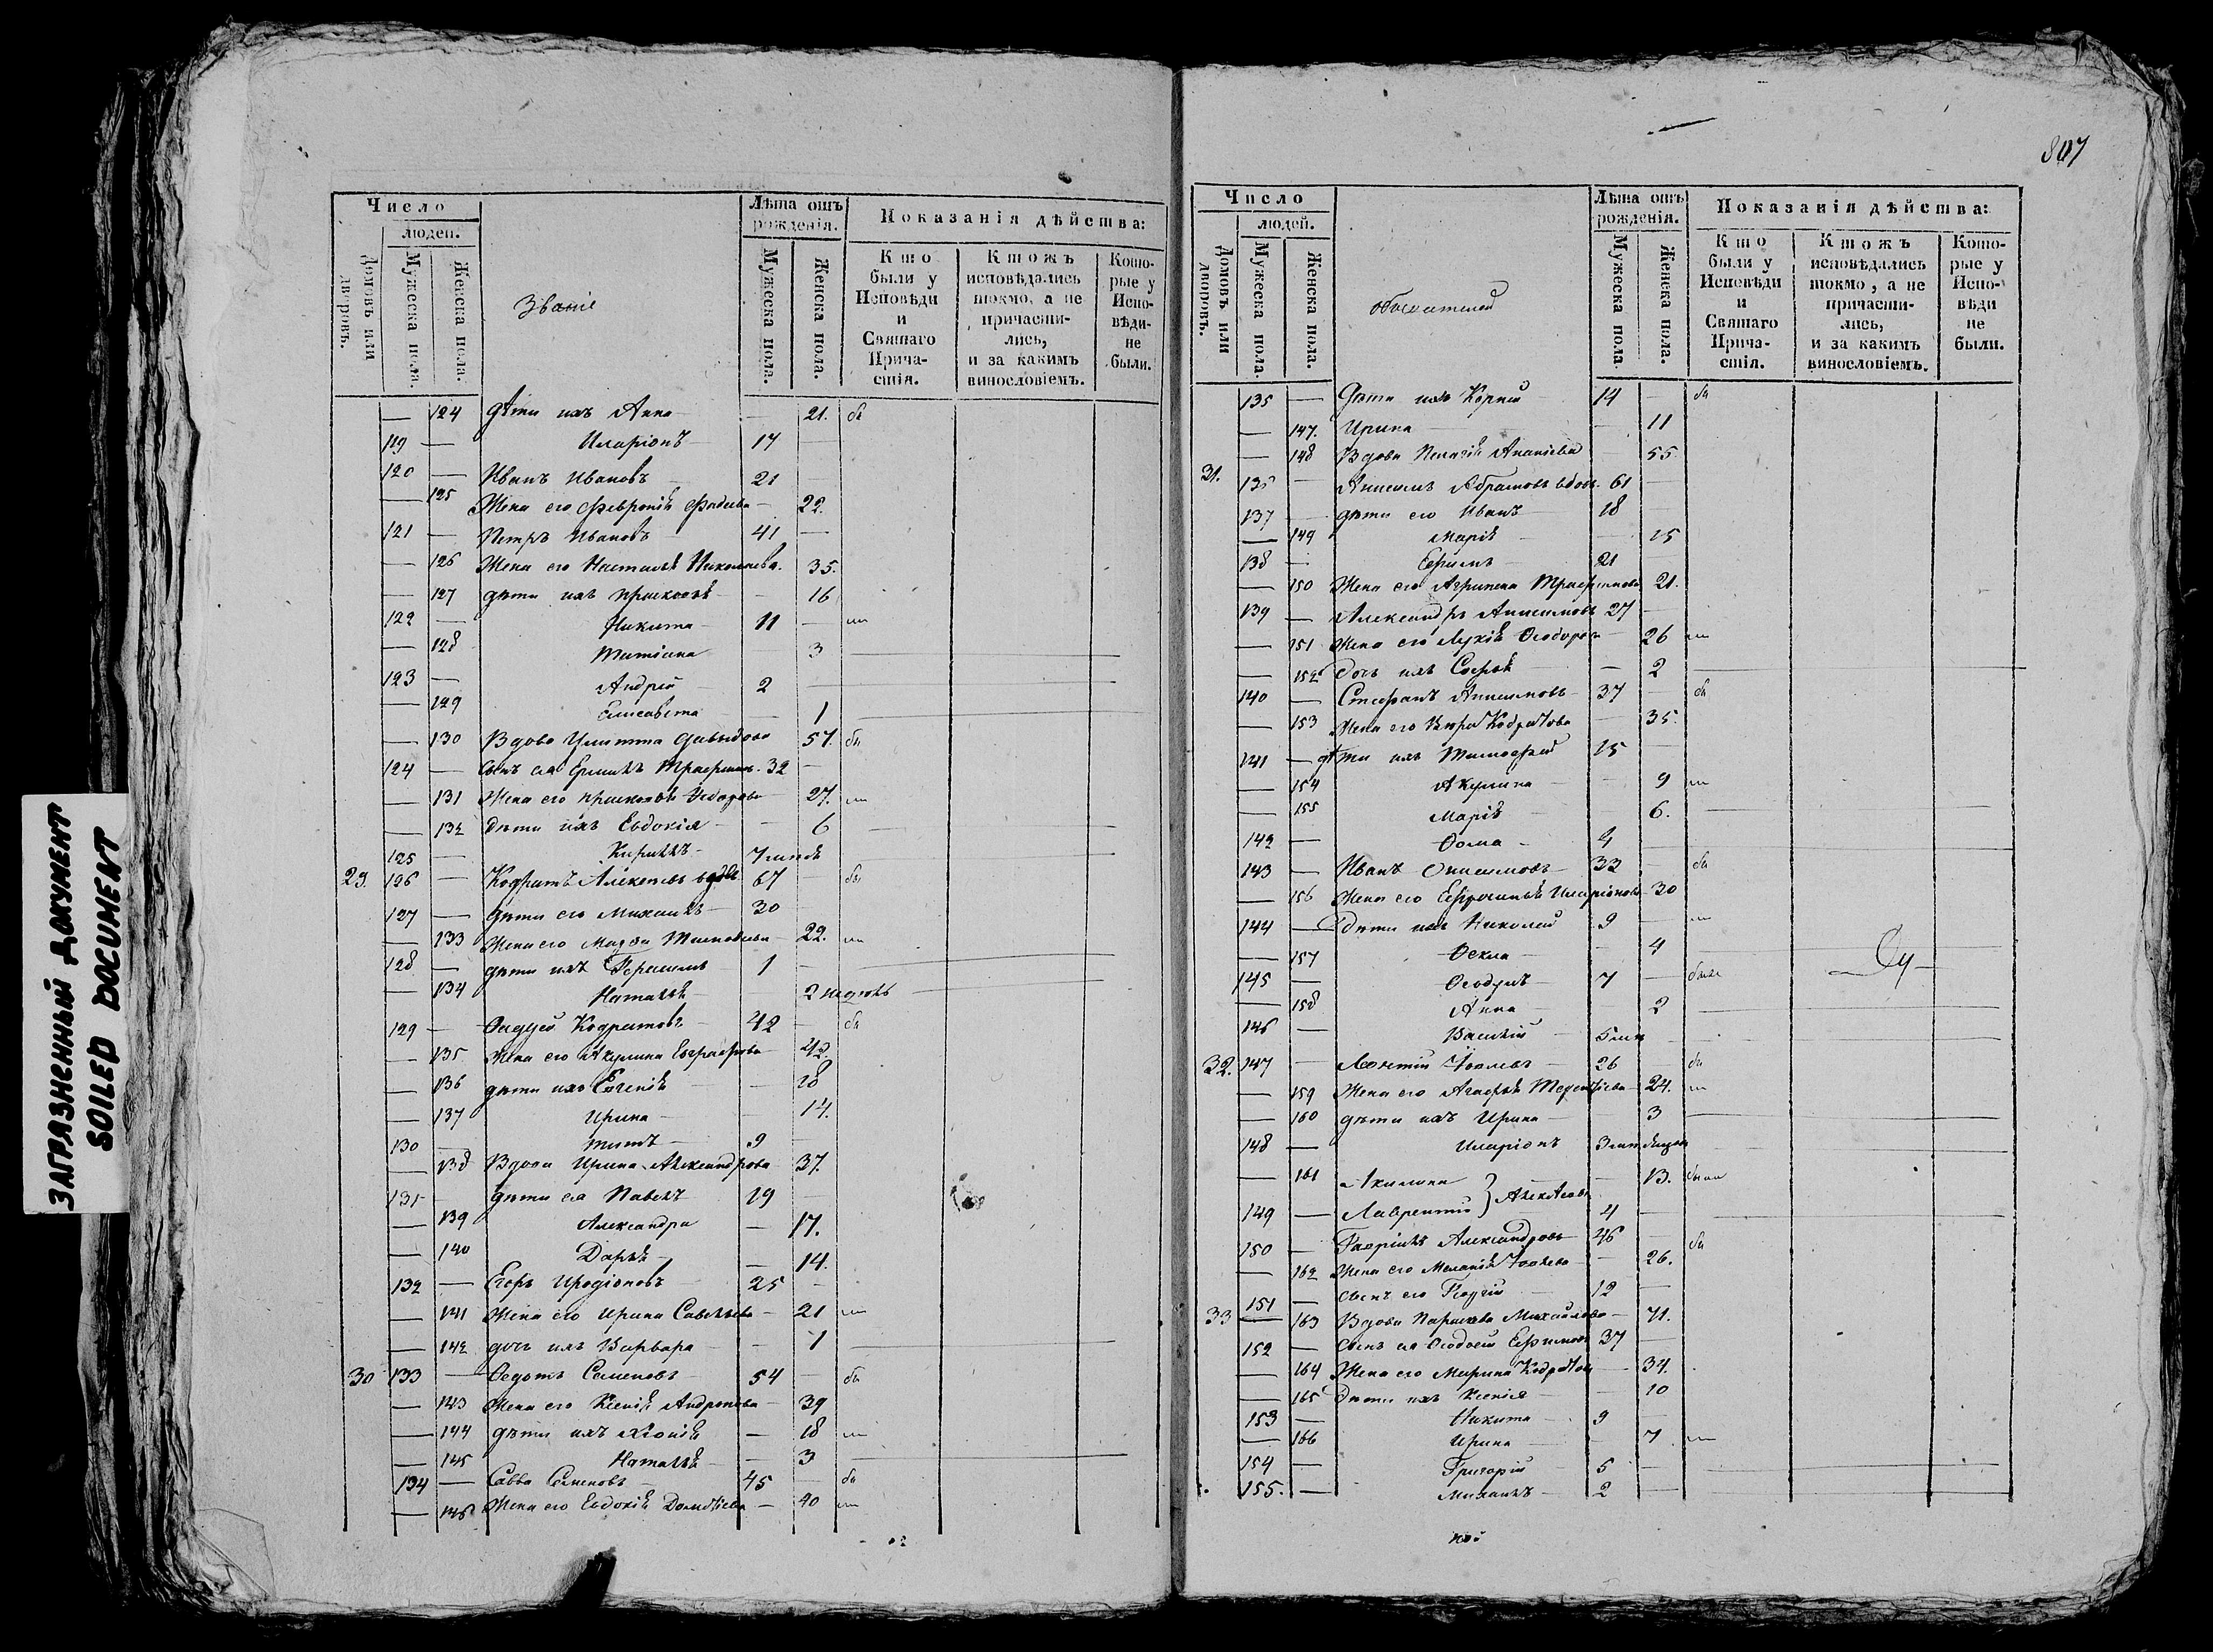 ЗАГРЯЗНЕННЫЙ ДОКУМЕНТ
SOILED DOCUMENT
Число
людей.
Домовъ или дворовъ.
Мужеска пола.
Женска пола.
Званіе
Лѣта отъ рожденія.
Мужеска пола.
Женска пола.
Показанія дѣйства:
Кто были у Исповѣди и Святаго Причастія.
Ктожъ исповѣдались токмо, а не причастились, и за какимъ винословіемъ.
Которые у Исповѣди не были.
— 124 дѣти ихъ Анна — 21. бы
119 — Иларіонъ 17
120 — Иванъ Ивановъ 21
— 125 Жена его Февронія Фадеева 22.
121 — Петръ Ивановъ 41 —
— 126 Жена его Наталья Николаева. 35.
— 127 дѣти ихъ Прасковья — 16
122 — Никита 11 —
— 128 Татіана 3
123 — Андрей 2 —
— 129 Елисавета — 1
— 130 Вдова Улитта Давыдова 57. бы
124 — сынъ ея 32 —
— 131 Жена его Прасковья 27.
— 132 Дѣти ихъ Евдокія — 6
125 — Кирилъ
29. 126 — Кодратъ Алексѣевъ вдовъ 67 — бы
127 — дѣти его Михаилъ 30
— 133 Жена его 22.
128 — дѣти ихъ Герасимъ 1 —
— 134 Наталья 2 недѣль
129 — Фаддей Кодратовъ 42 — бы
— 135 Жена его Акулина Евграфова 42.
— 136 дѣти ихъ Евгенія — 18
— 137 Ирина — 14.
130 — Титъ 9 —
— 138 Вдова Ирина Александрова 37.
131 — дѣти ея Павелъ 19 —
— 139 Александра — 17.
— 140 Дарья — 14.
132 — Егоръ Иродіоновъ 25 —
— 141 Жена его Ирина Савельева 21
— 142 дочь ихъ Варвара — 1
30 133 — Федотъ Семеновъ 54 — бы
— 143 Жена его Ксенія Андреева 39
— 144 дѣти ихъ Хіонія — 18
— 145 Наталья — 3
134 — Савва Семеновъ 45 — бы
— 146 Жена его Евдокія — 40
807
Число
людей.
Домовъ или дворовъ.
Мужеска пола.
Женска пола.
обывателей
Лѣта отъ рожденія.
Мужеска пола.
Женска пола.
Показанія дѣйства:
Кто были у Исповѣди и Святаго Причастія.
Ктожъ исповѣдались токмо, а не причастились, и за какимъ винословіемъ.
Которые у Исповѣди не были.
135 — Дѣти ихъ Корній 14 — бы
— 147. Ирина — 11
— 148 Вдова Пелагія Ананіева 55
31. 136 — Анисимъ Абрамовъ вдовъ. 61 —
137 — дѣти его Иванъ 18 —
— 149 Марія — 15
138 — Ефимъ 21
— 150 Жена его Агрипена 21.
139 — Александръ Анисимовъ 27 —
— 151 Жена его Лукія 26
— 152 дочь ихъ Софья — 2
140 — Стефанъ Анисимовъ 37 — бы
— 153 Жена его Вѣра Кодратова — 35.
141 — дѣти ихъ Тимофей 15 —
— 154 Акулина — 9
— 155 Марія — 6.
142 — Фома 4 —
143 — Иванъ Онисимовъ 33 — бы
— 156 Жена его Ефросинья Иларіонова 30
144 — Дѣти ихъ Николай 9 —
— 157 Фекла — 4
145 — 7 —
— 158 Анна — 2
146 — Василій
32. 147 — Леонтій 26 — бы
— 159 Жена его Агафья 24.
— 160 дѣти ихъ Ирина — 3
148 — Иларіонъ
— 161 Акилина — 13.
149 — Лаврентій 4 —
150 — Гавріилъ Александровъ 46 — бы
— 162 Жена его Меланія 26.
151 — сынъ его Георгій 12 —
33 — 163 Вдова Параскева Михайлова 71.
152 — сынъ ея Ефимовъ 37 —
— 164 Жена его Марина Кодратова — 34.
— 165 Дѣти ихъ Ксенія — 10
153 — Никита 9 —
— 166 Ирина — 7
154 — Григорій 5 —
155. — Михаилъ 2 —